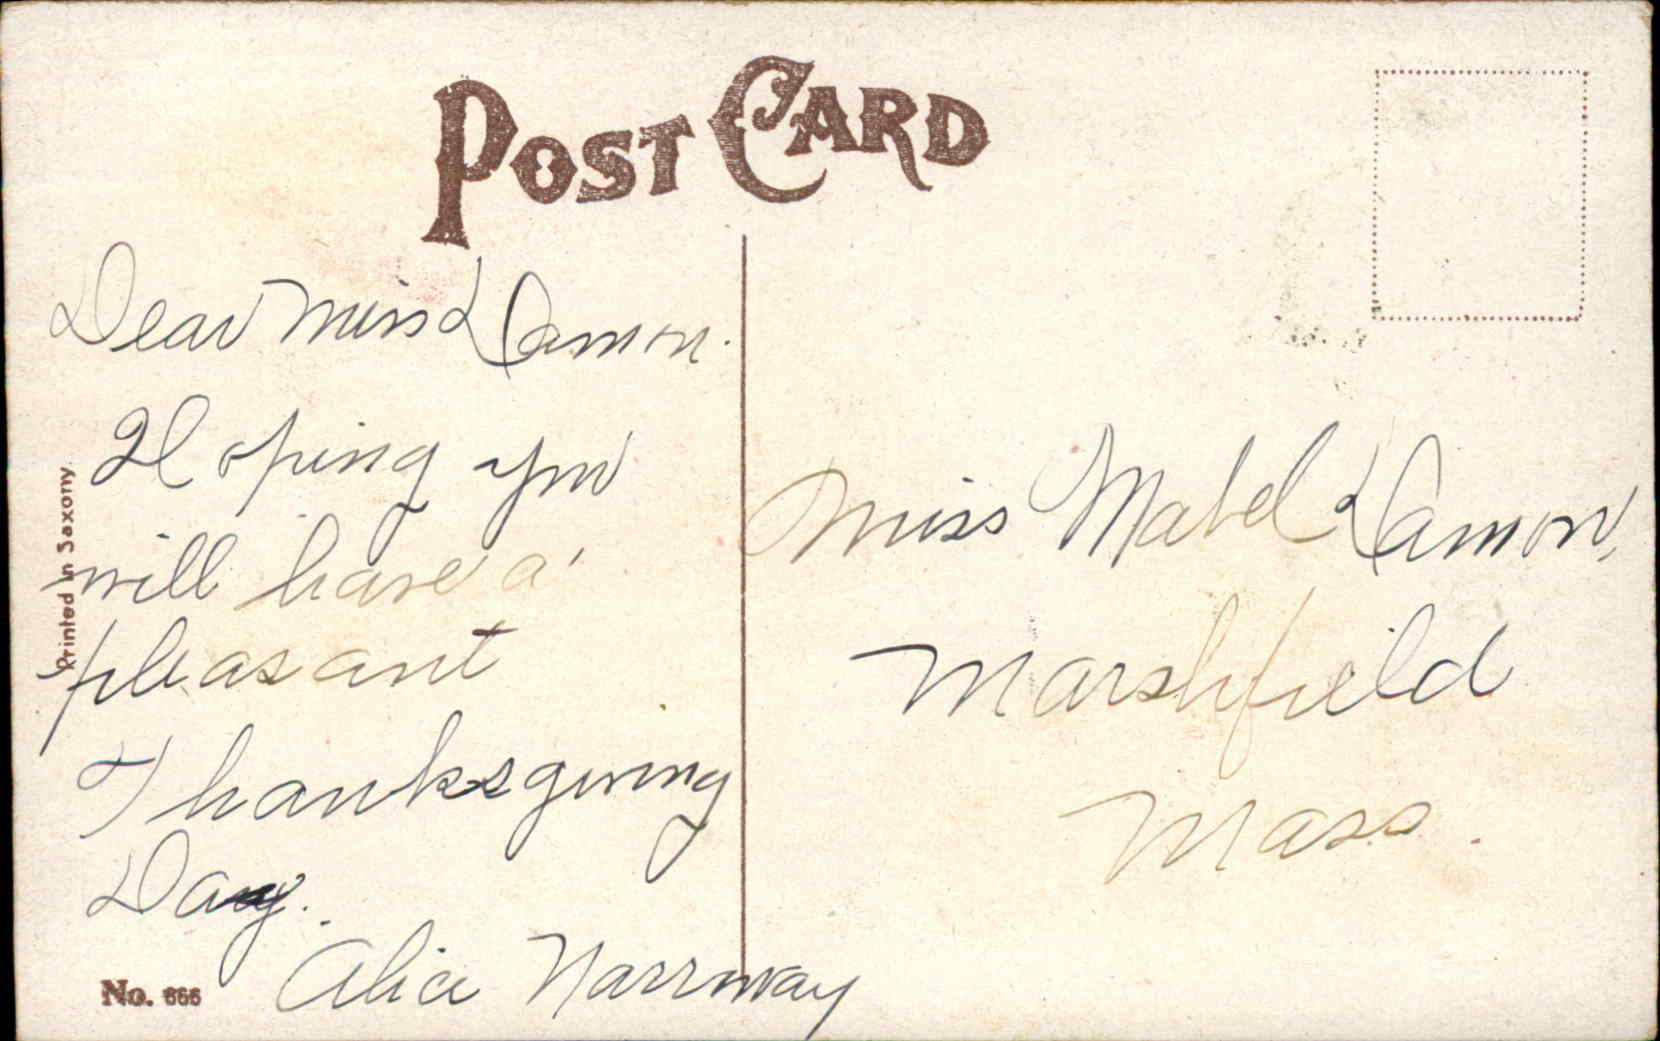 POST CARD
Dear Miss Damon.
Hoping you
will have a
pleasant
Thanksgiving
Day.
Alice Narroway
Miss Mabel Damon,
Marshfield
Mass.
Printed in Saxony.
No. 666